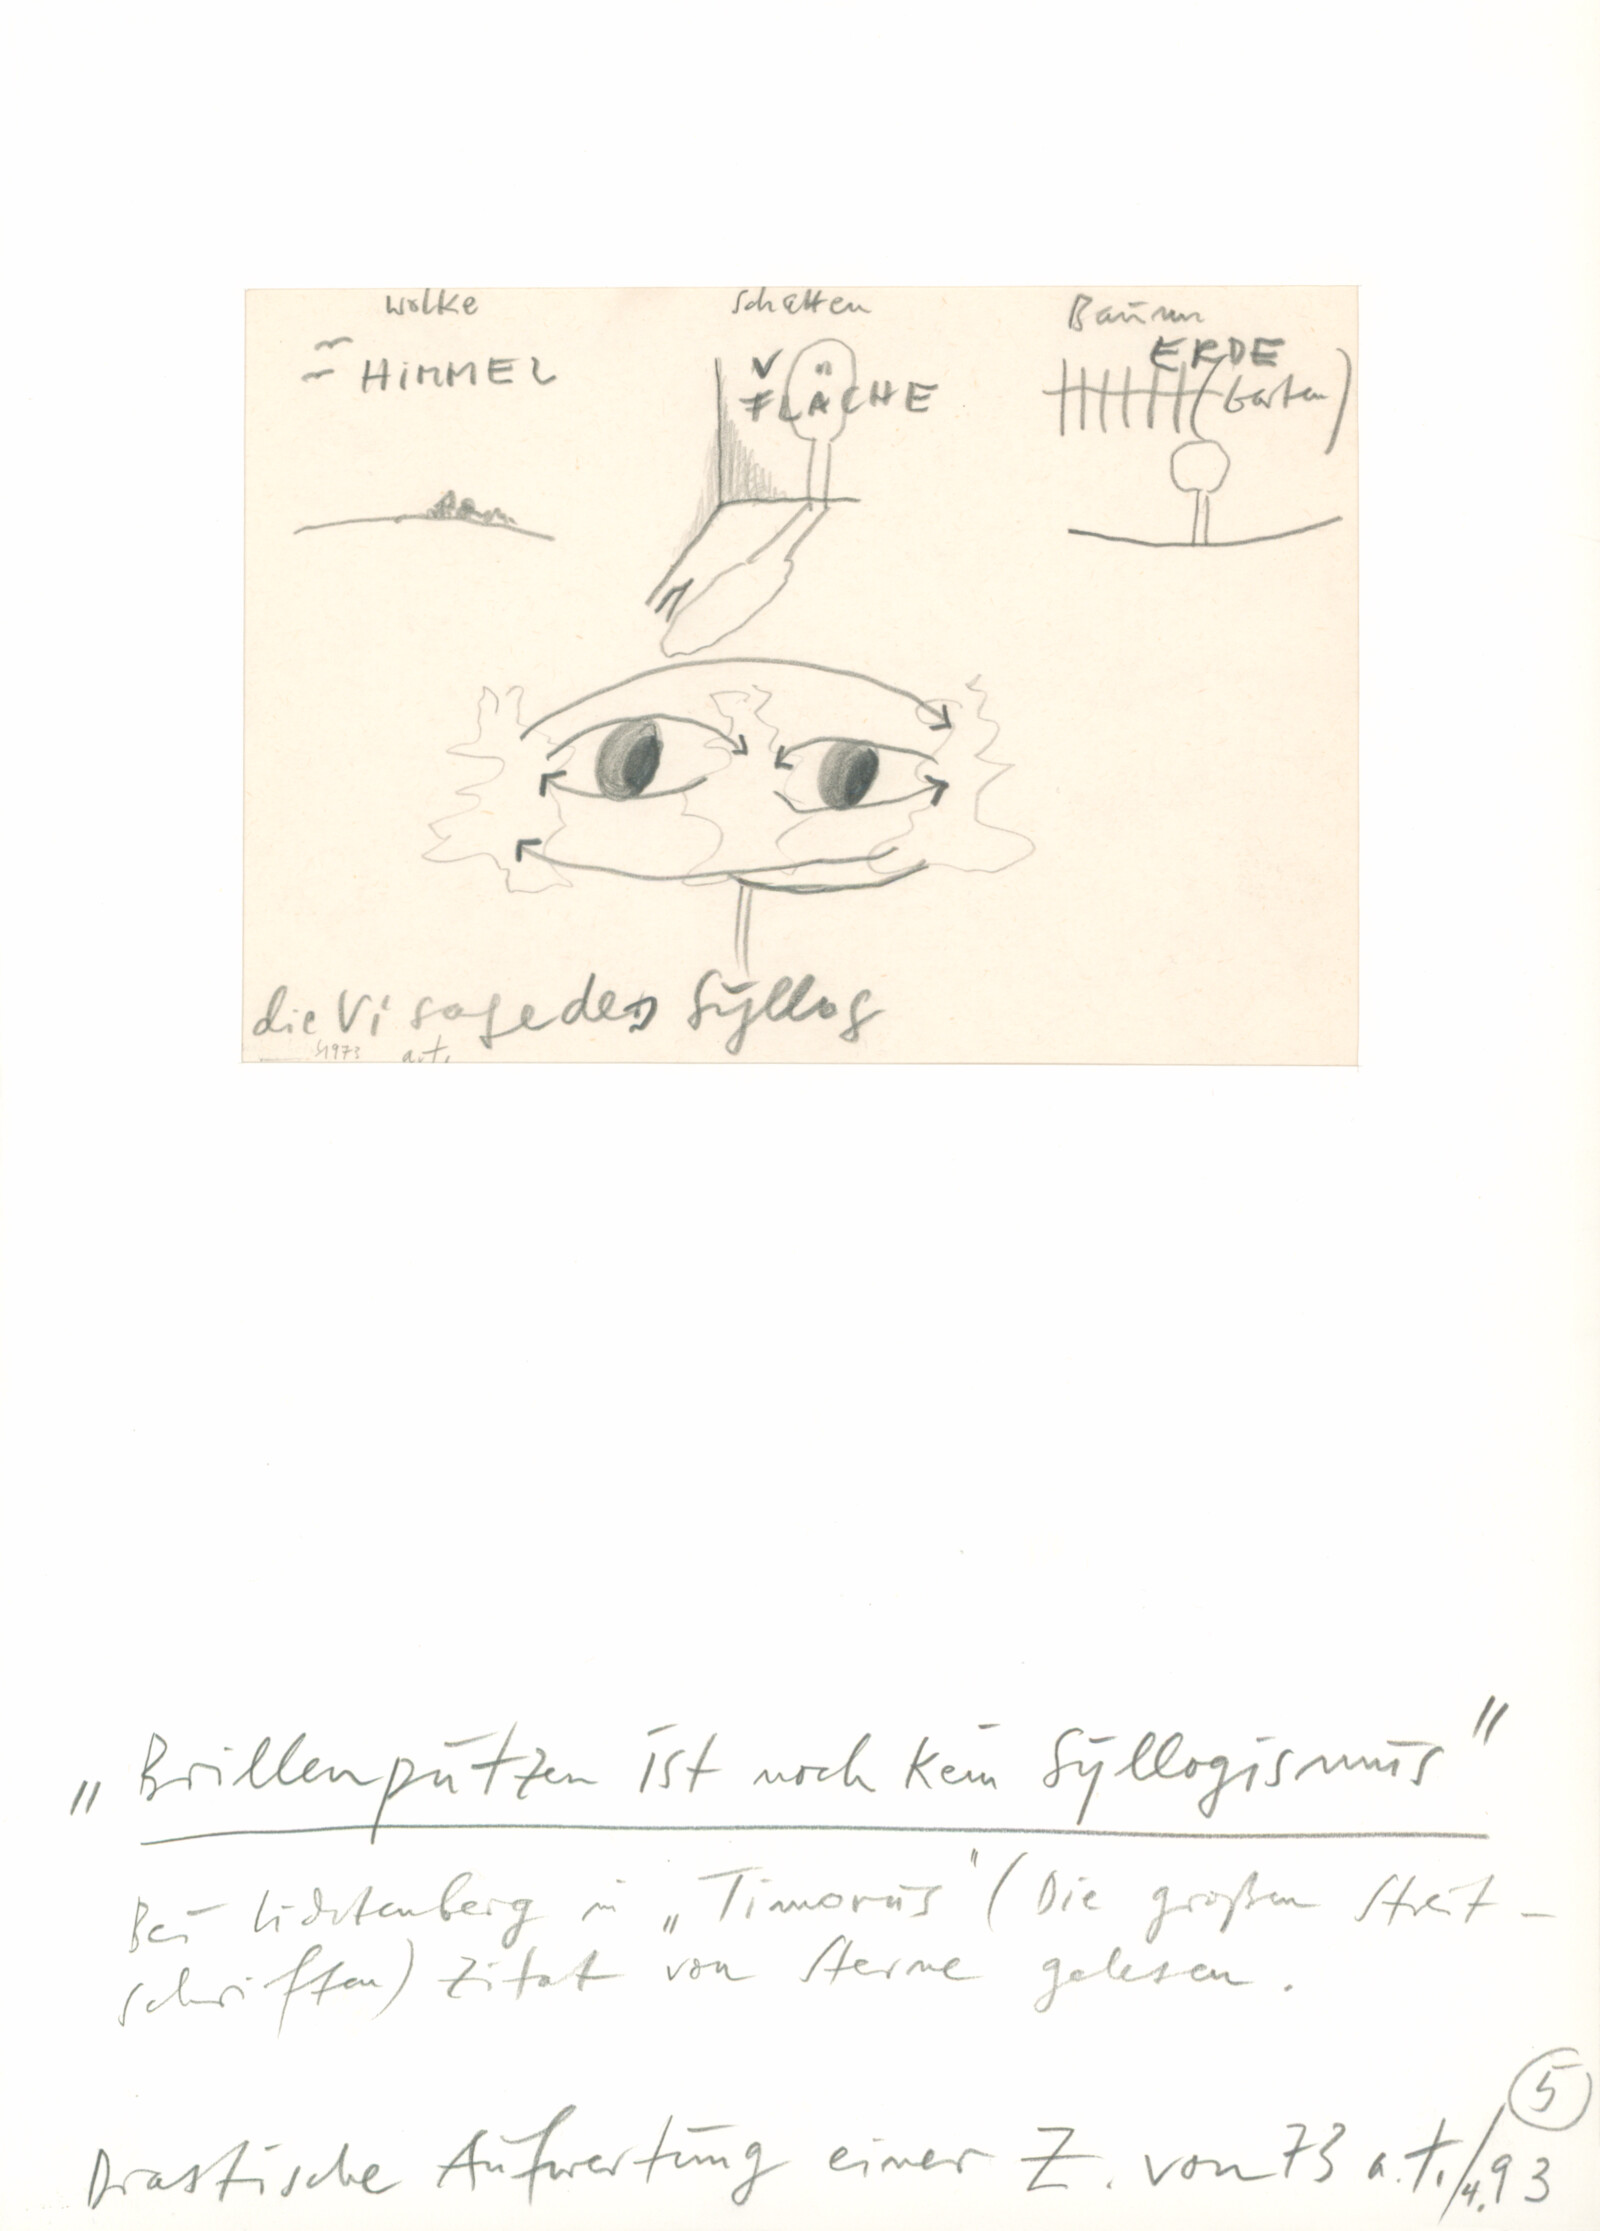 Wolke Schatten Baum
HiMMEL
V
FLÄCHE
ERDE
(Garten)
die Visage des Syllog
1973 a.t.
„Brillenputzen ist noch kein Syllogismus"
Bei Lichtenberg in „Timorus" (Die großen Streit-
schriften) Zitat von Sterne gelesen.
5
Drastische Aufwertung einer Z. von 73 a.t./4.93